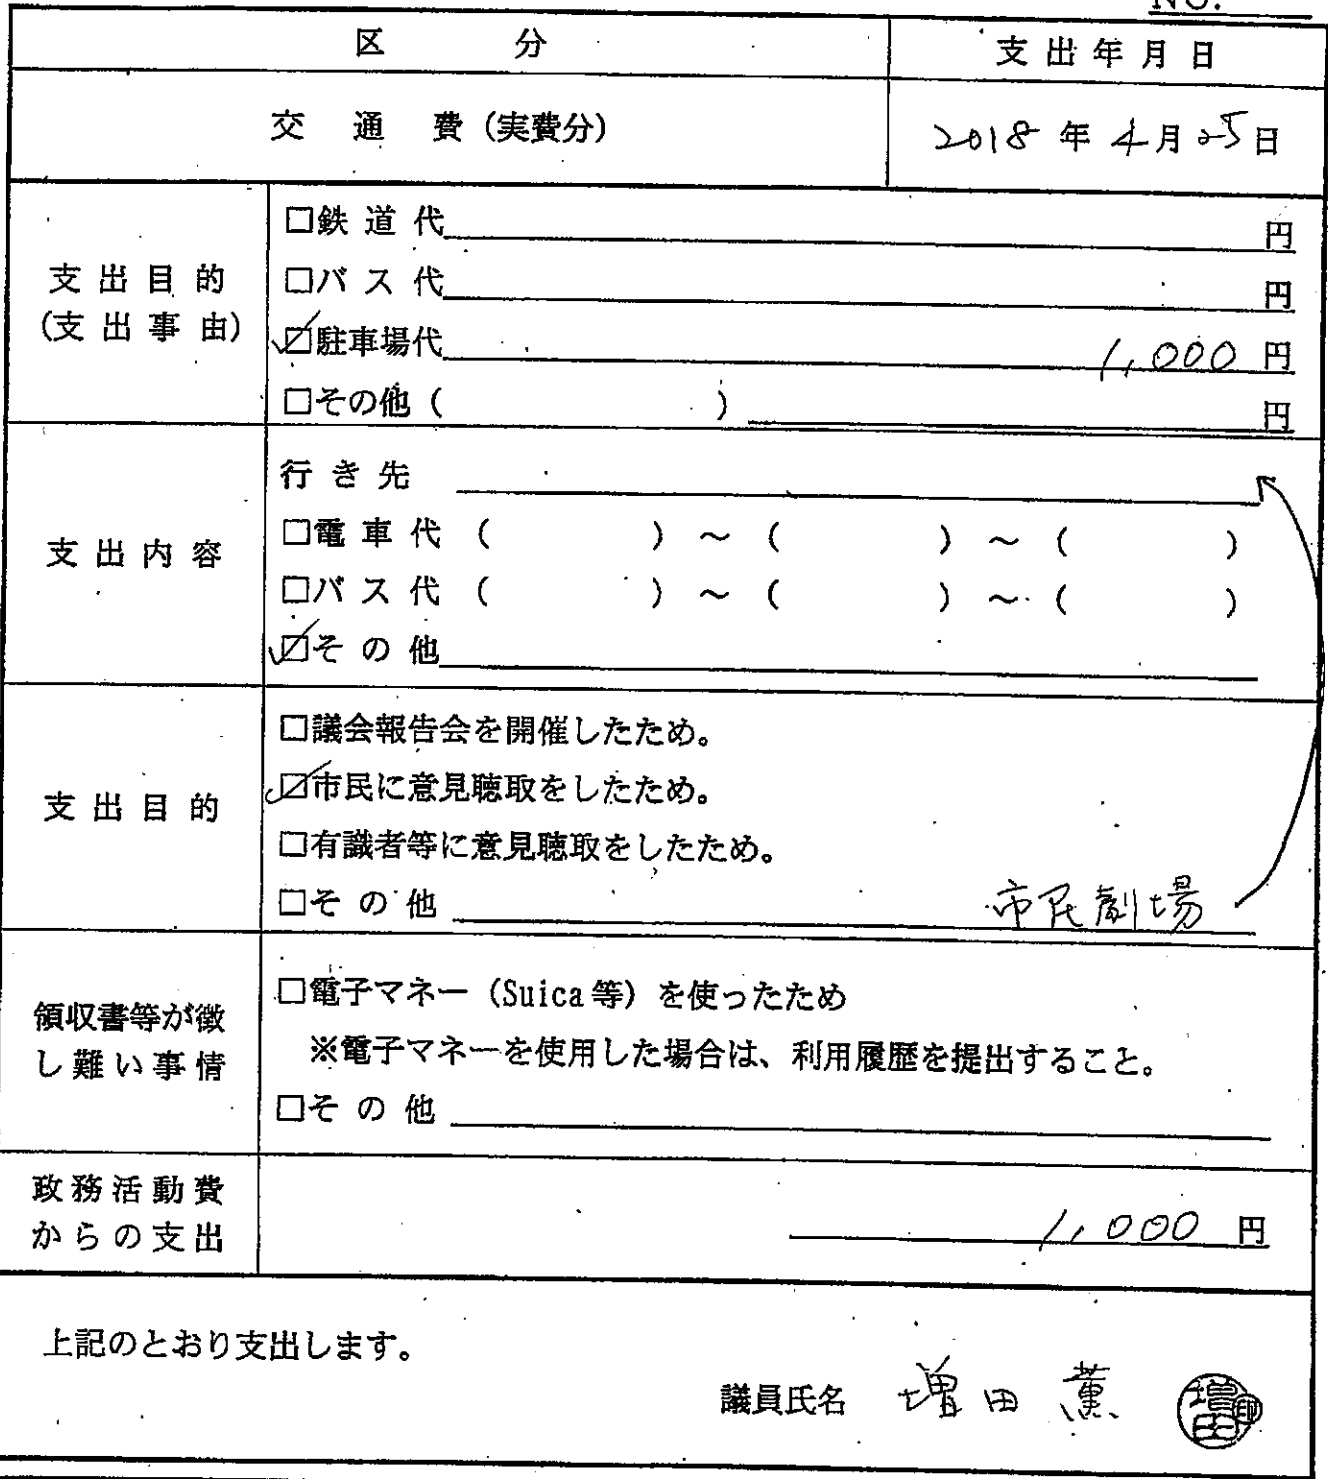 NO.
区 分 支出年月日
交通費(実費分) 2018年4月25日
支出目的
(支出事由)
□鉄道代 円
□バス代 円
☑駐車場代 1,000円
□その他( ) 円
支出内容
行き先
□電車代( )~( )~( )
□バス代( )~( )~( )
☑その他
支出目的
□議会報告会を開催したため。
☑市民に意見聴取をしたため。
□有識者等に意見聴取をしたため。
□その他 市民劇場
領収書等が徴
し難い事情
□電子マネー(Suica等)を使ったため
※電子マネーを使用した場合は、利用履歴を提出すること。
□その他
政務活動費
からの支出
1,000円
上記のとおり支出します。
議員氏名 増田 薫 増田 印